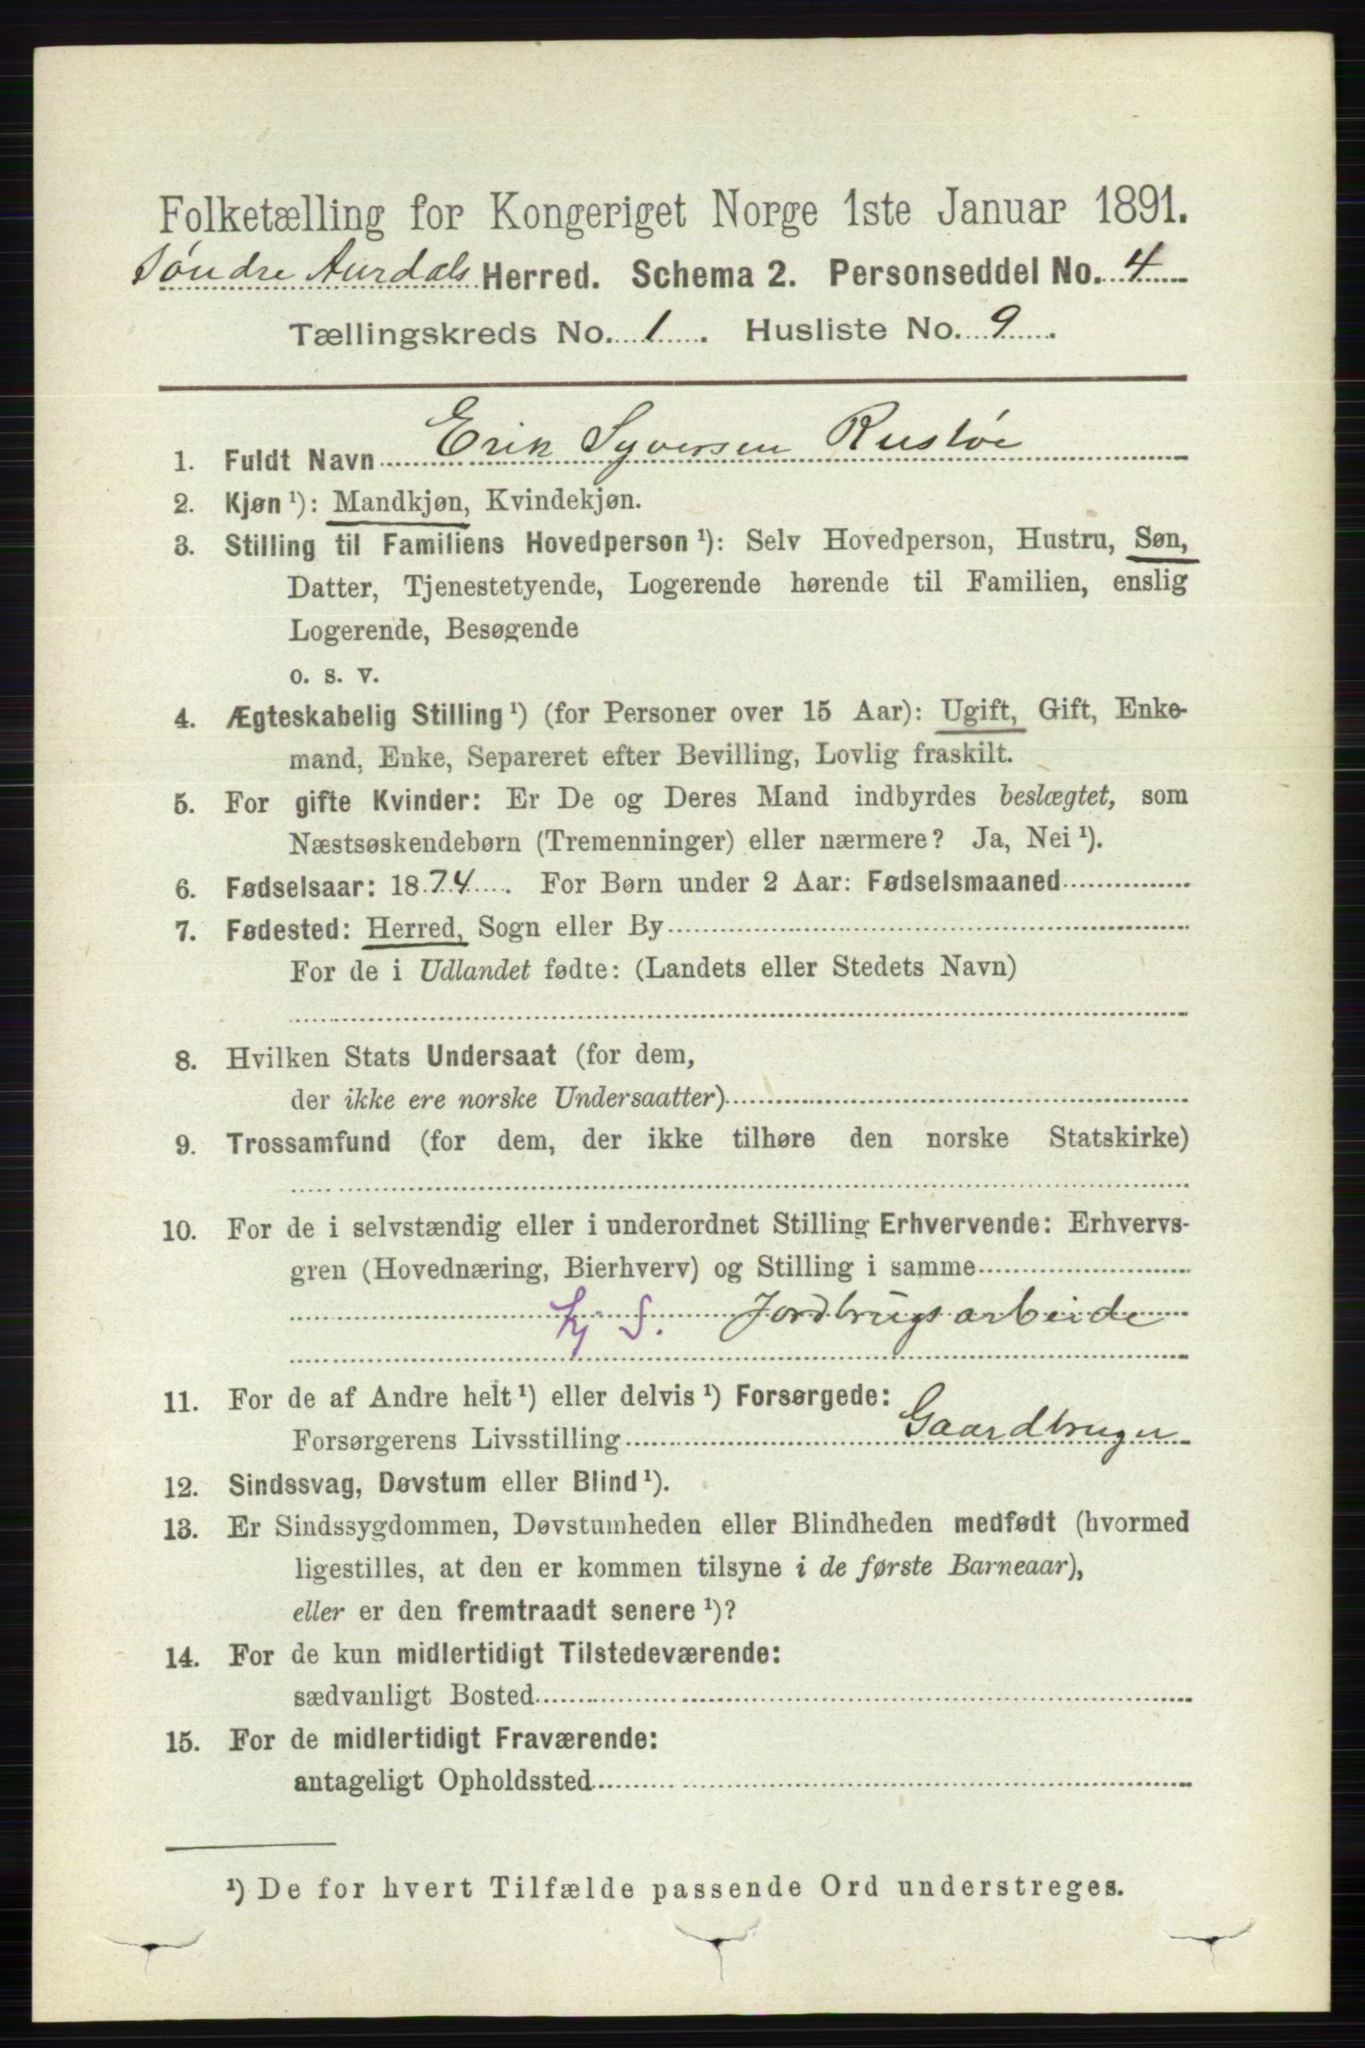 Folketælling for Kongeriget Norge 1ste Januar 1891.
Søndre Aurdals Herred. Schema 2. Personseddel No. 4
Tællingskreds No. 1. Husliste No. 9.
1. Fuldt Navn Erik Syversen Rustøe
2. Kjøn ¹): Mandkjøn, Kvindekjøn.
3. Stilling til Familiens Hovedperson ¹): Selv Hovedperson, Hustru, Søn,
Datter, Tjenestetyende, Logerende hørende til Familien, enslig
Logerende, Besøgende
o. s. v.
4. Ægteskabelig Stilling ¹) (for Personer over 15 Aar): Ugift, Gift, Enke-
mand, Enke, Separeret efter Bevilling, Lovlig fraskilt.
5. For gifte Kvinder: Er De og Deres Mand indbyrdes beslægtet, som
Næstsøskendebørn (Tremenninger) eller nærmere? Ja, Nei ¹).
6. Fødselsaar: 1874. For Børn under 2 Aar: Fødselsmaaned
7. Fødested: Herred, Sogn eller By
For de i Udlandet fødte: (Landets eller Stedets Navn)
8. Hvilken Stats Undersaat (for dem,
der ikke ere norske Undersaatter)
9. Trossamfund (for dem, der ikke tilhøre den norske Statskirke)
10. For de i selvstændig eller i underordnet Stilling Erhvervende: Erhvervs-
gren (Hovednæring, Bierhverv) og Stilling i samme
Jordbrugsarbeide
11. For de af Andre helt ¹) eller delvis ¹) Forsørgede:
Forsørgerens Livsstilling Gaardbruger
12. Sindssvag, Døvstum eller Blind ¹).
13. Er Sindssygdommen, Døvstumheden eller Blindheden medfødt (hvormed
ligestilles, at den er kommen tilsyne i de første Barneaar),
eller er den fremtraadt senere ¹)?
14. For de kun midlertidigt Tilstedeværende:
sædvanligt Bosted
15. For de midlertidigt Fraværende:
antageligt Opholdssted
¹) De for hvert Tilfælde passende Ord understreges.